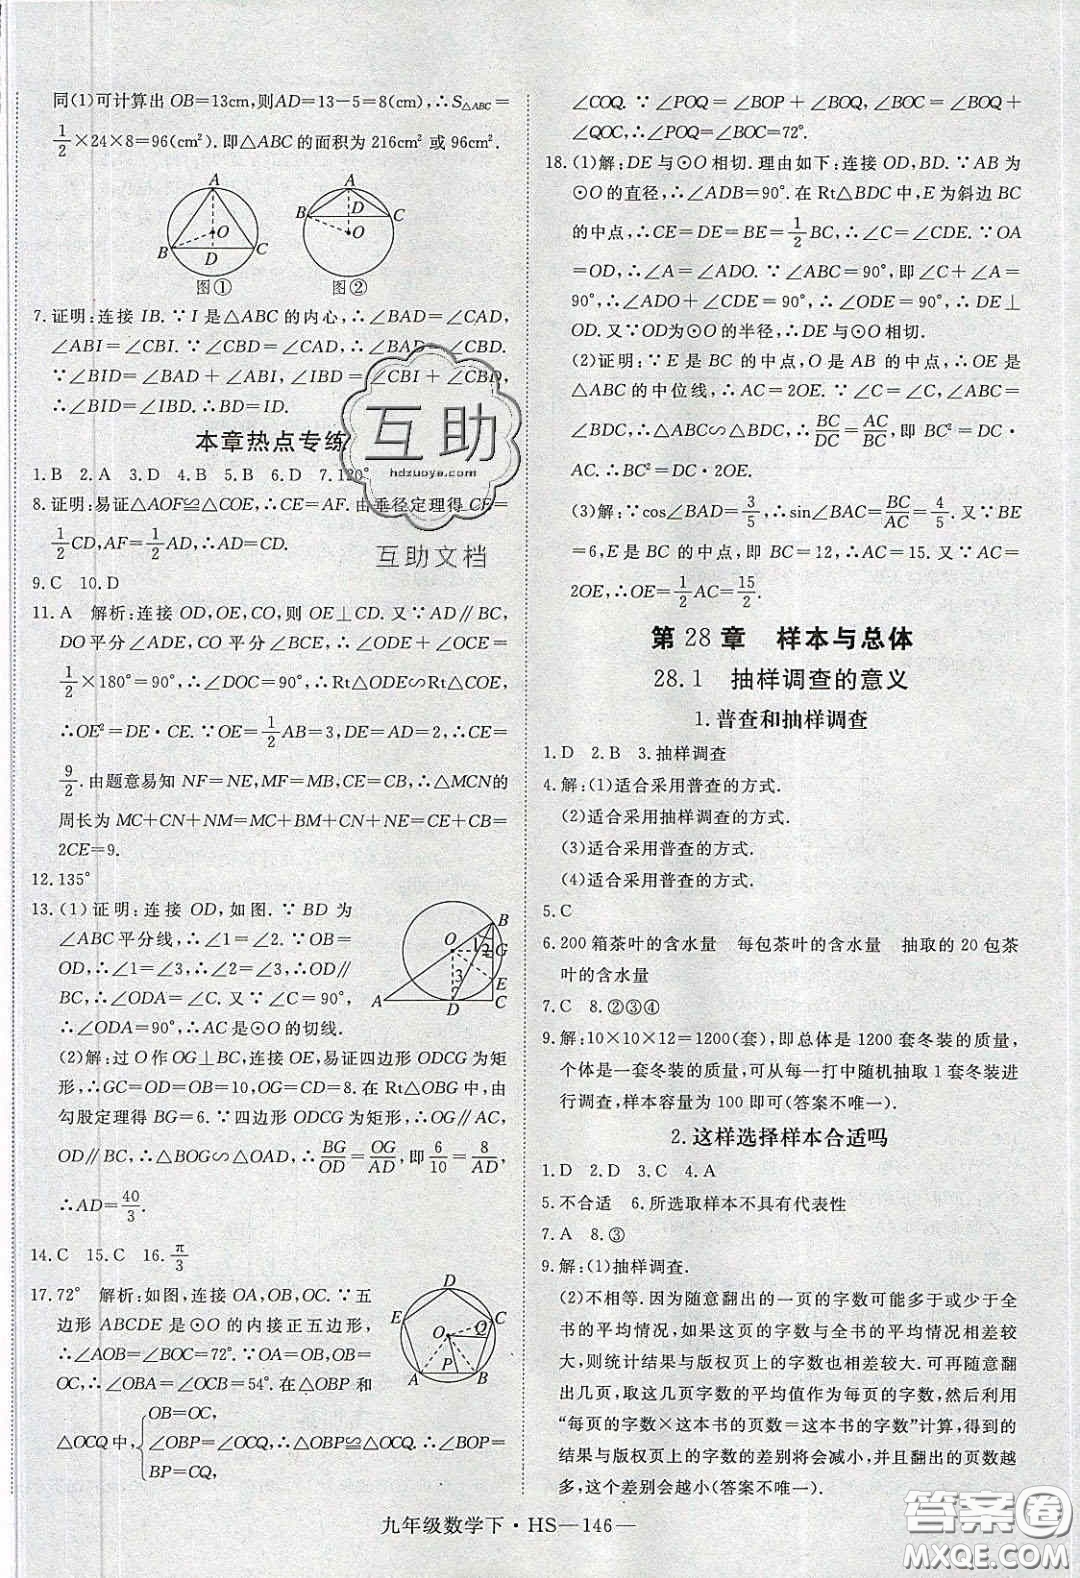 同(1)可计算出 OB=13cm,则AD=13-5=8(cm),∴S△ABC=
1/2×24×8=96(cm²). 即△ABC 的面积为 216cm² 或 96cm².
A
O
B
D
C
图①
A
B
D
C
O
图②
7. 证明:连接 IB. ∵I 是△ABC 的内心,∴∠BAD=∠CAD,
∠ABI=∠CBI. ∵∠CBD=∠CAD,∴∠BAD=∠CBD.
∵∠BID=∠BAD+∠ABI,∠IBD=∠CBI+∠CBD,
∴∠BID=∠IBD. ∴BD=ID.
本章热点专练
1. B 2. A 3. D 4. B 5. B 6. D 7. 120°
8. 证明:易证△AOF≌△COE,∴CE=AF. 由垂径定理得 CE=
1/2CD,AF=1/2AD,∴AD=CD.
9. C 10. D
11. A 解析:连接 OD,OE,CO,则 OE⊥CD. 又∵AD∥BC,
DO 平分∠ADE,CO 平分∠BCE,∴∠ODC+∠OCE=
1/2×180°=90°,∴∠DOC=90°,∴Rt△ODE∽Rt△COE,
∴OE²=DE·CE. ∵OE=1/2AB=3,DE=AD=2,∴CE=
9/2. 由题意易知 NF=NE,MF=MB,CE=CB,∴△MCN的
周长为 MC+CN+NM=MC+BM+CN+NE=CE+CB=
2CE=9.
12. 135°
13. (1)证明:连接 OD,如图. ∵BD 为
∠ABC平分线,∴∠1=∠2. ∵OB=
OD,∴∠1=∠3,∴∠2=∠3,∴OD∥
BC,∴∠ODA=∠C. 又∵∠C=90°,
∴∠ODA=90°,∴AC是⊙O的切线.
B
O
1
2
G
3
E
A
D
C
(2)解:过 O 作 OG⊥BC,连接 OE,易证四边形 ODCG 为矩
形,∴GC=OD=OB=10,OG=CD=8. 在 Rt△OBG 中,由
勾股定理得 BG=6. ∵四边形 ODCG 为矩形,∴OG∥AC,
OD∥BC,∴△BOG∽△OAD,∴BG/OD=OG/AD,即6/10=8/AD,
∴AD=40/3.
14. C 15. C 16. π/3
17. 72° 解析:如图,连接 OA,OB,OC. ∵五
边形 ABCDE 是⊙O 的内接正五边形,
∴∠AOB=∠BOC=72°. ∵OA=OB=
OC,∴∠OBA=∠OCB=54°. 在△OBP 和
△OCQ 中,{OB=OC,
∠OBP=∠OCQ,∴△OBP≌△OCQ,∴∠BOP=
BP=CQ,
D
E
C
O
Q
P
A
B
∠COQ. ∵∠POQ=∠BOP+∠BOQ,∠BOC=∠BOQ+
∠QOC,∴∠POQ=∠BOC=72°.
18. (1)解:DE 与⊙O 相切. 理由如下:连接 OD,BD. ∵AB 为
⊙O 的直径,∴∠ADB=90°. 在 Rt△BDC 中,E 为斜边 BC
的中点,∴CE=DE=BE=1/2BC,∴∠C=∠CDE. ∵OA
=OD,∴∠A=∠ADO. ∵∠ABC=90°,即∠C+∠A=
90°,∴∠ADO+∠CDE=90°,∴∠ODE=90°,∴DE⊥
OD. 又∵OD为⊙O的半径,∴DE与⊙O相切.
(2)证明:∵E 是 BC 的中点,O 是 AB 的中点,∴OE 是
△ABC 的中位线,∴AC=2OE. ∵∠C=∠C,∠ABC=
∠BDC,∴△ABC∽△BDC,∴BC/DC=AC/BC,
∴BC²=AC·CD,∴BC²=2CD·OE.
(3)解:∵cos∠BAD=3/5,∴sin∠BAC=BC/AC=4/5. 又∵BE
=6,E 是 BC 的中点,即 BC=12,∴AC=15. 又∵AC=
2OE,∴OE=1/2AC=15/2.
第 28 章 样本与总体
28. 1 抽样调查的意义
1. 普查和抽样调查
1. D 2. B 3. 抽样调查
4. 解:(1)适合采用普查的方式.
(2)适合采用抽样调查的方式.
(3)适合采用普查的方式.
(4)适合采用普查的方式.
5. C
6. 200 箱茶叶的含水量 每包茶叶的含水量 抽取的 20 包茶
叶的含水量
7. C 8. ②③④
9. 解:10×10×12=1200(套),即总体是 1200 套冬装的质量,
个体是一套冬装的质量,可从每一打中随机抽取 1 套冬装
进行调查,样本容量为 100 即可(答案不唯一).
2. 这样选择样本合适吗
1. D 2. D 3. C 4. A
5. 不合适 6. 所选取样本不具有代表性
7. A 8. ③
9. 解:(1)抽样调查.
(2)不相等. 因为随意翻出的一页的字数可能多于或少于全
书的平均情况,如果这页的字数与全书的平均情况相差较
大,则统计结果与版权页上的字数也相差较大. 可随意翻
出几页,取这几页字数的平均值作为每页的字数,然后利用
“每页的字数×这本书的页数=这本书的字数”计算,得到的
结果与版权页上的字数的差别将会减小,并且翻出的页数越
多,这个差别会越小(答案不唯一).
九年级数学下·HS—146—
互助
hdzuoye.com
互助文档
答案圈
MXQE.COM